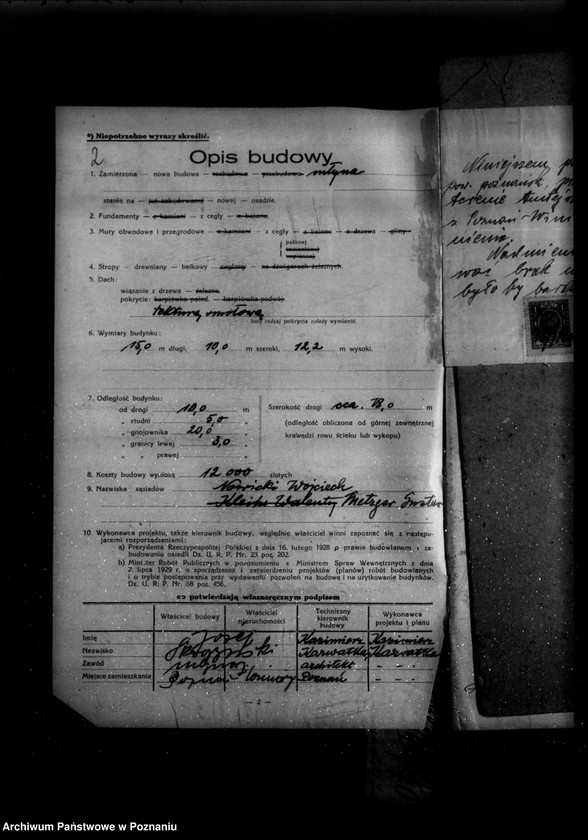 *) Niepotrzebne wyrazy skreślić.
2
Opis budowy
1. Zamierzona — nowa budowa — rozbudowa — przebudowa młyna
stanie na — już zabudowanej — nowej — osadzie.
2. Fundamenty — z kamieni — z cegły — z betonu.
3. Mury obwodowe i przegrodowe — z kamieni — z cegły — z betonu — z drzewa — gliny
palonej
cementowej
4. Stropy — drewniany — belkowy — na dźwigarach żelaznych.
5. Dach:
wiązanie z drzewa — żelazne.
pokrycie: karpiówka pojed. — karpiówka podwój.
tekturą smołową
Inny rodzaj pokrycia należy wymienić.
6. Wymiary budynku:
15,0 m długi, 10,0 m szeroki, 12,2 m wysoki.
7. Odległość budynku:
od drogi 10,0 m
„ studni 5,0 „
„ gnojownika 20,0 „
„ granicy lewej 3,0 „
„ „ prawej „
Szerokość drogi m
(odległość obliczona od górnej zewnętrznej
krawędzi rowu ścieku lub wykopu)
8. Koszty budowy wynoszą 12 000 złotych
9. Nazwiska sąsiadów Nowicki Wojciech
Walenty Metzger
10. Wykonawca projektu, także kierownik budowy, względnie właściciel winni zapoznać się z następującemi rozporządzeniami:
a) Prezydenta Rzeczypospolitej Polskiej z dnia 16. lutego 1928 o prawie budowlanem i zabudowaniu osiedli Dz. U. R. P. Nr. 23 poz. 202.
b) Minister Robót Publicznych w porozumieniu z Ministrem Spraw Wewnętrznych z dnia
2. lipca 1929 o sporządzeniu i zatwierdzeniu projektów (planów) robót budowlanych
i o trybie postępowania przy wydawaniu pozwoleń na budowę i na użytkowanie budynków.
Dz. U. R. P. Nr. 58 poz. 456.
co potwierdzają własnoręcznym podpisem
Właściciel budowy Właściciel nieruchomości Techniczny kierownik budowy Wykonawca projektu i planu
Imię Józef Kazimierz Kazimierz
Nazwisko
Zawód architekt — — —
Miejsce zamieszkania Poznań — — —
— 2 —
Niniejszem
pow. poznański
terenie
z Poznań
Nadmieni
brak
było by
Archiwum Państwowe w Poznaniu